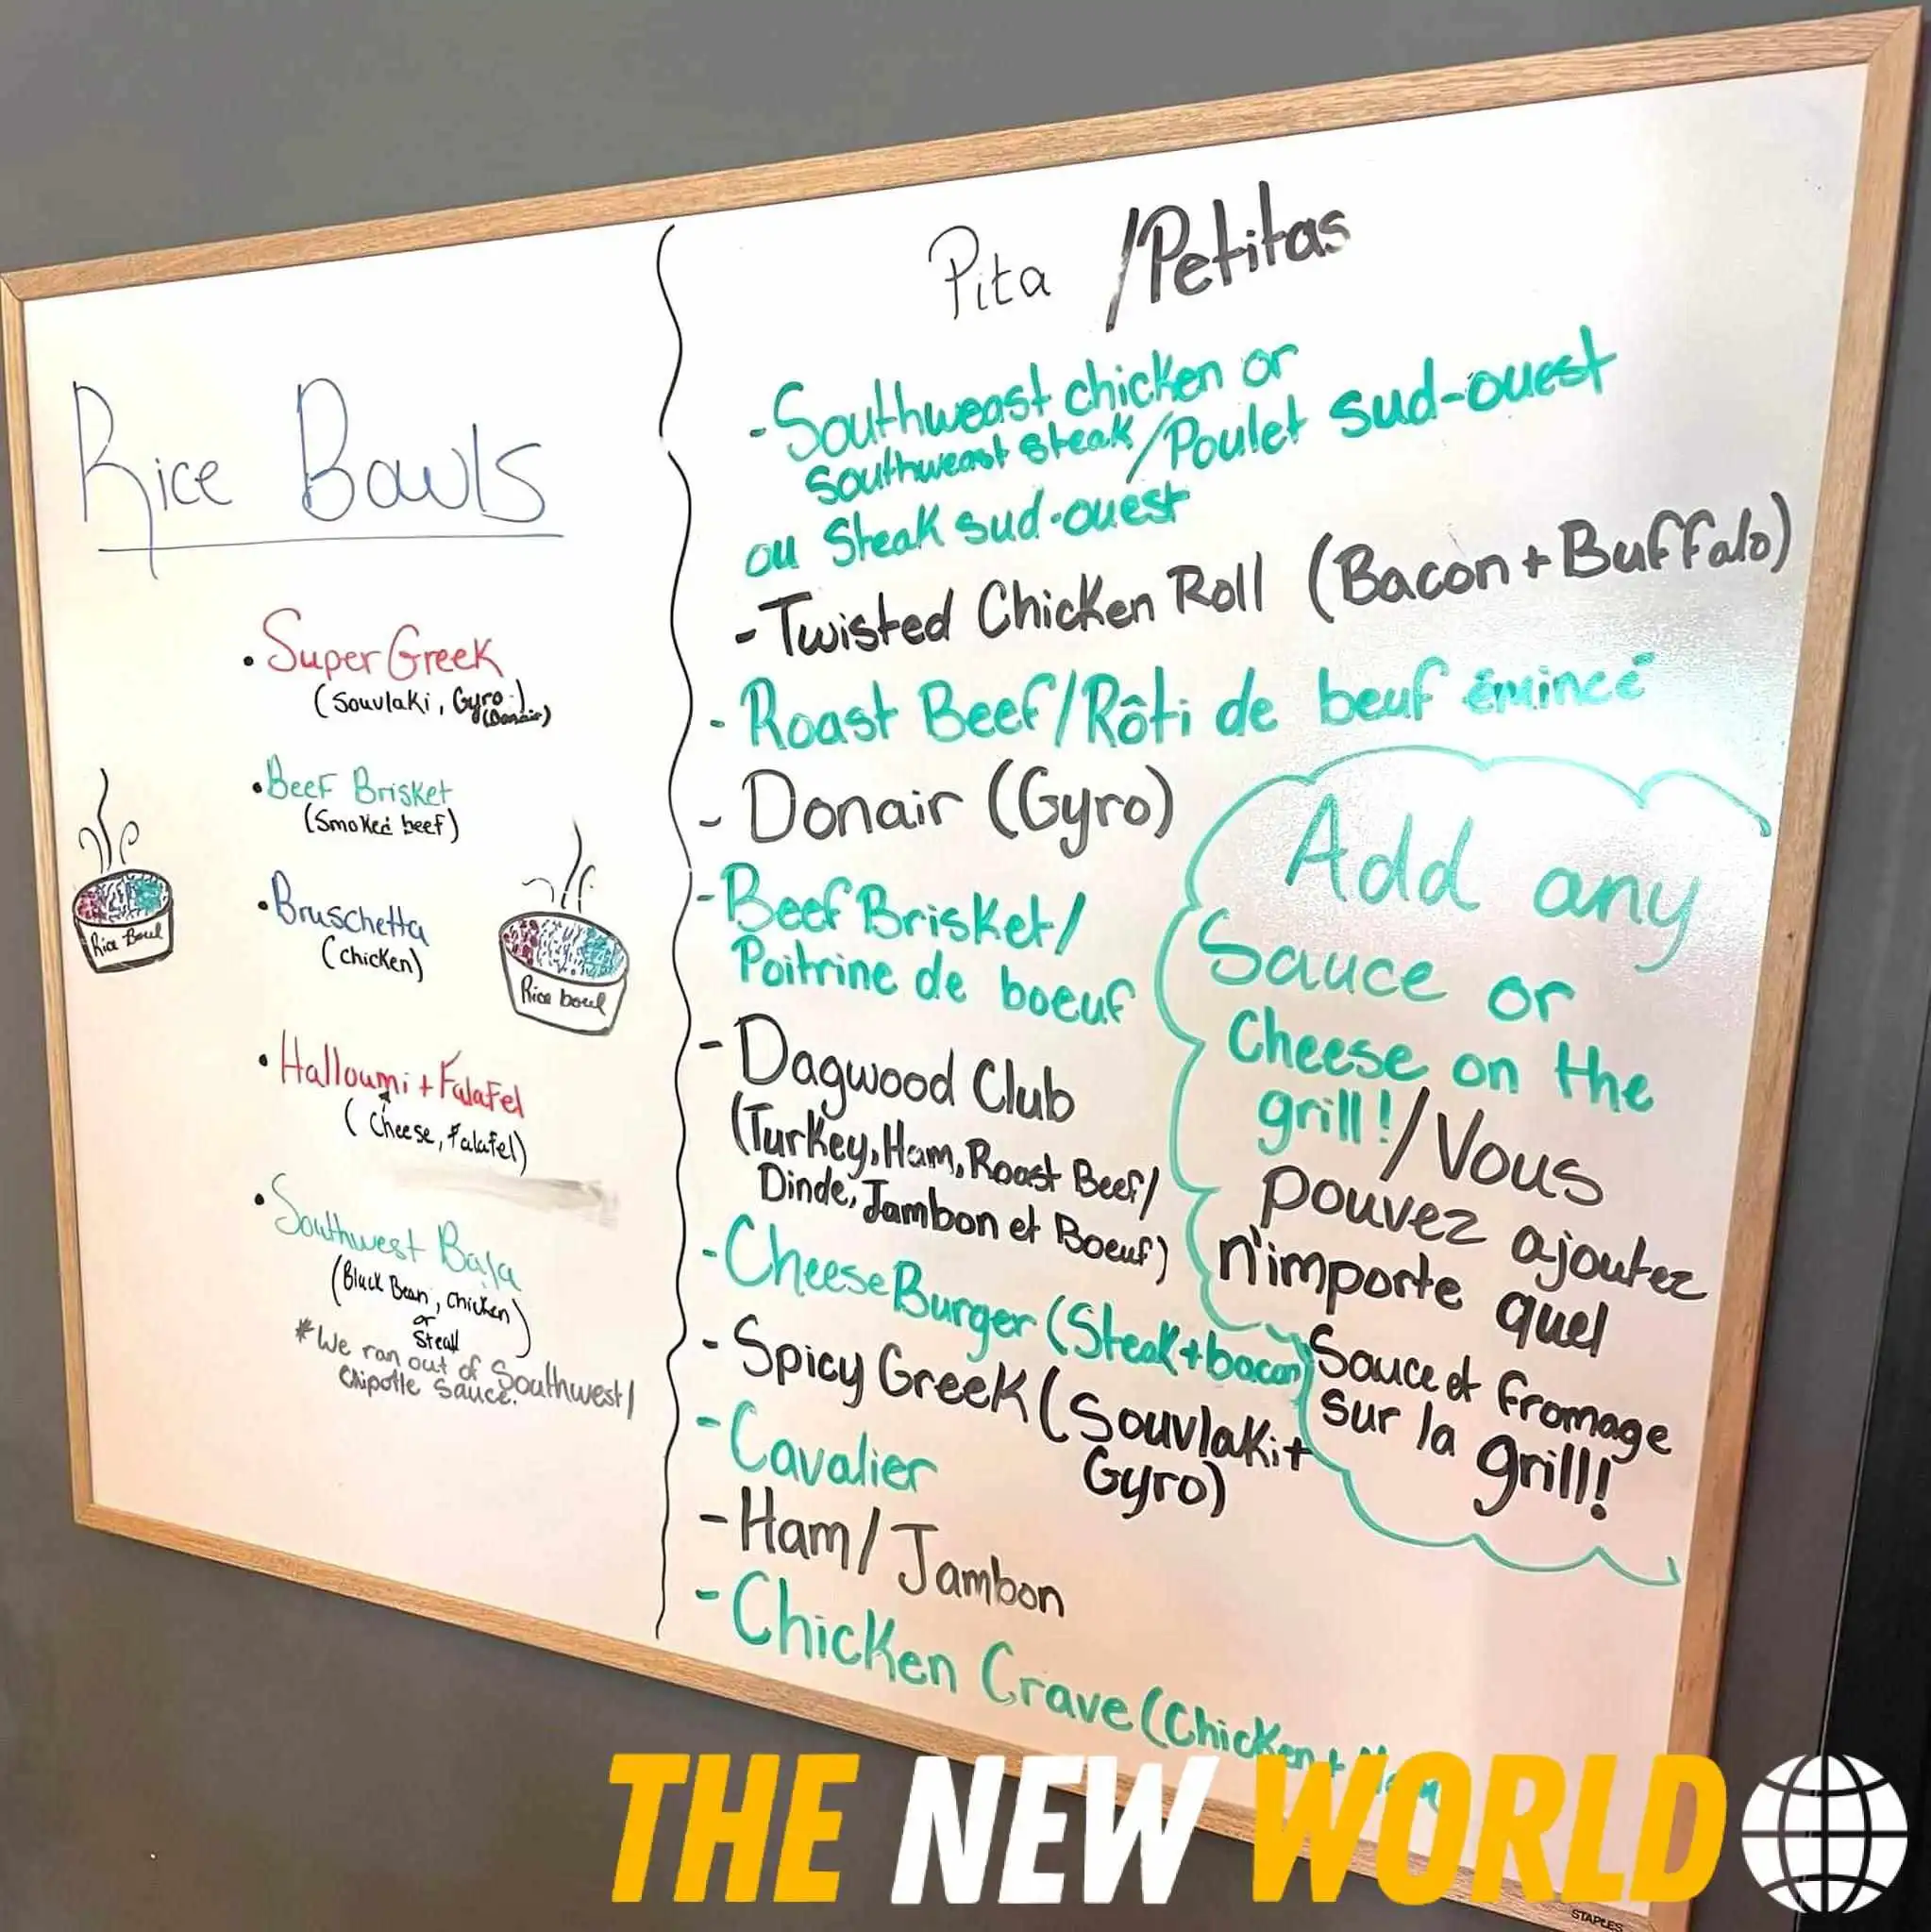 Rice Bowls
• Super Greek
(Souvlaki, Gyro)
(Donair)
• Beef Brisket
(Smoked beef)
• Bruschetta
(chicken)
Rice Bowl
Rice bowl
• Halloumi + Falafel
(Cheese, Falafel)
• Southwest Baja
(Black Bean, Chicken)
or
Steak
*We ran out of Southwest/
Chipotle Sauce.
Pita / Petitas
- Southweast chicken or
Southweast Steak / Poulet sud-ouest
ou Steak sud-ouest
- Twisted Chicken Roll (Bacon + Buffalo)
- Roast Beef / Rôti de beuf émincé
- Donair (Gyro)
- Beef Brisket /
Poitrine de boeuf
- Dagwood Club
(Turkey, Ham, Roast Beef /
Dinde, Jambon et Boeuf)
- Cheese Burger (Steak + bacon)
- Spicy Greek (Souvlaki +
Gyro)
- Cavalier
- Ham / Jambon
- Chicken Crave (Chicken +
Add any
Sauce or
Cheese on the
grill! / Vous
pouvez ajoutez
n'importe quel
Sauce et fromage
sur la grill!
THE NEW WORLD
STAPLES